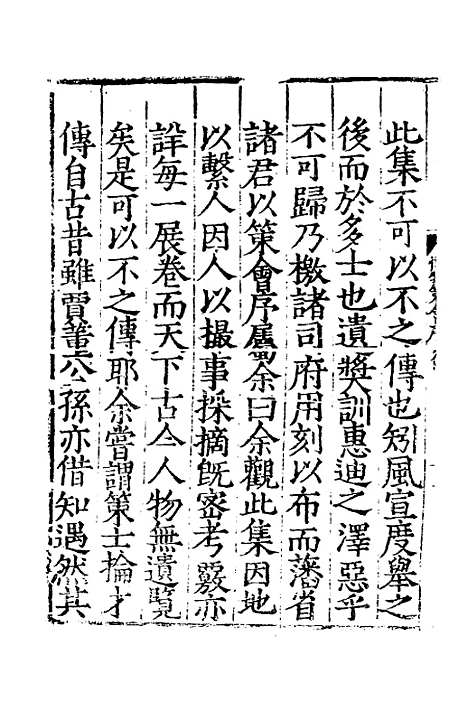 此集不可以不之傳也矧風宣度舉之
後而於多士也遺奬訓惠迪之澤惡乎
不可歸乃檄諸司府用刻以布而藩省
諸君以策會序屬余曰余觀此集因地
以繫人因人以撮事採摘旣密考覈亦
詳每一展卷而天下古今人物無遺覽
矣是可以不之傳耶余嘗謂策士掄才
傳自古昔雖賈董公孫亦借知遇然其